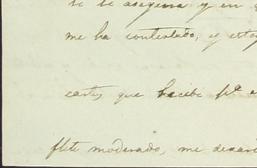 si se asegura y en
me ha contestado, y estoy
cartas que recibe pr. e
flete moderado, me decari